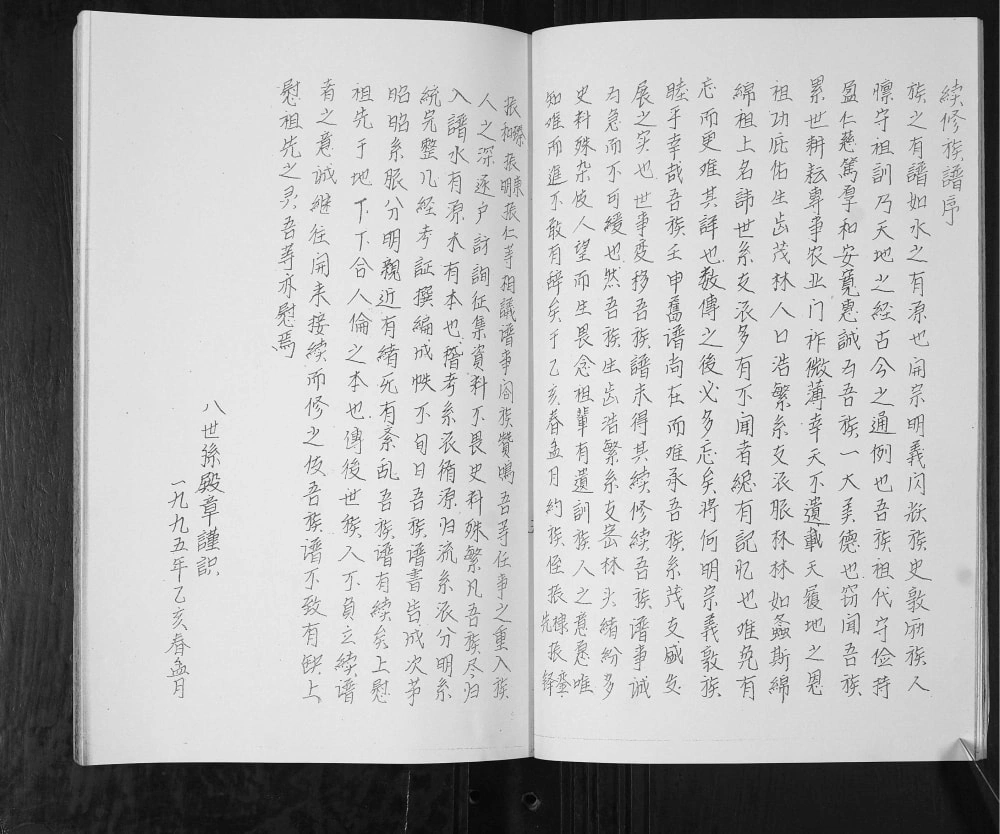 续修族譜序
族之有譜如水之有源也开宗明義闪狀族史敦励族人
懔守祖訓乃天地之经古今之通例也吾族祖代守俭持
盈仁慈篤孝和安寬惠誠为吾族一大美德也窃闻吾族
累世耕耘專事农业门祚微薄幸天不遺載天覆地之恩
祖功庇佑生齿茂林人口浩繁系支派脈林林如螽斯綿
綿祖上名諱世系支派多有不闻者縂有記忆也难免有
忘而更难其詳也数傳之後必多忘矣将何明宗義敦族
睦乎幸哉吾族壬申舊谱尚在而难承吾族系茂支盛发
展之实也世事变移吾族譜未得其续修续吾族谱事诚
为急而不可緩也然吾族生齿浩繁系支密林头緒紛多
史料殊杂伎人望而生畏念祖輩有遺訓族人之意愿唯
知难而進不敢有辞矣于乙亥春孟月約族侄振先棣振鋒
振和振明振仁等相議谱事阖族赞鳴吾等任事之重入族
人之深逐户訪詢征集資料不畏史料殊繁凡吾族尽归
入譜水有原木有本也稽考系派循源归流系派分明系
統完整几经考証撰编成帙不旬日吾族谱書告成次第
昭昭系脈分明親近有緒死有紊乱吾族谱有续矣上慰
祖先于地下下合人倫之本也傳後世族入不負立续谱
者之意诚继往開来接续而修之伎吾族谱不致有缺上
慰祖先之灵吾等亦慰焉
八世孫殿章謹识
一九九五年乙亥春孟月